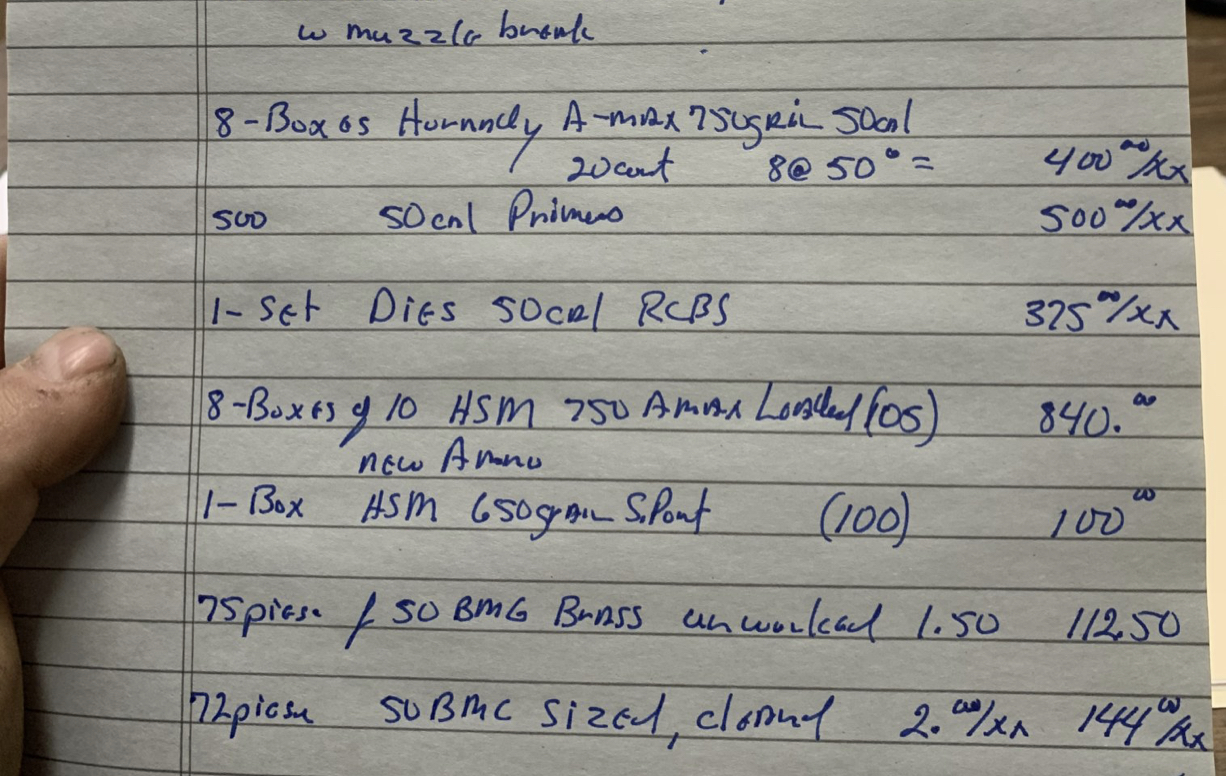 w muzzle break
8-Boxes Hornady A-max 750grain 50cal
20 count 8@ 50° = 400 00/xx
500 50cal Primers 500 00/xx
1- Set Dies 50cal RCBS 375 00/xx
8-Boxes of 10 HSM 750 Amax Loaded (105) 840. 00
new Ammo
1-Box HSM 650grain S.Pont (100) 100 00
75piese of 50 BMG Brass unworked 1.50 112.50
72piese 50BMG Sized, cleaned 2. 00/xx 144 00/xx